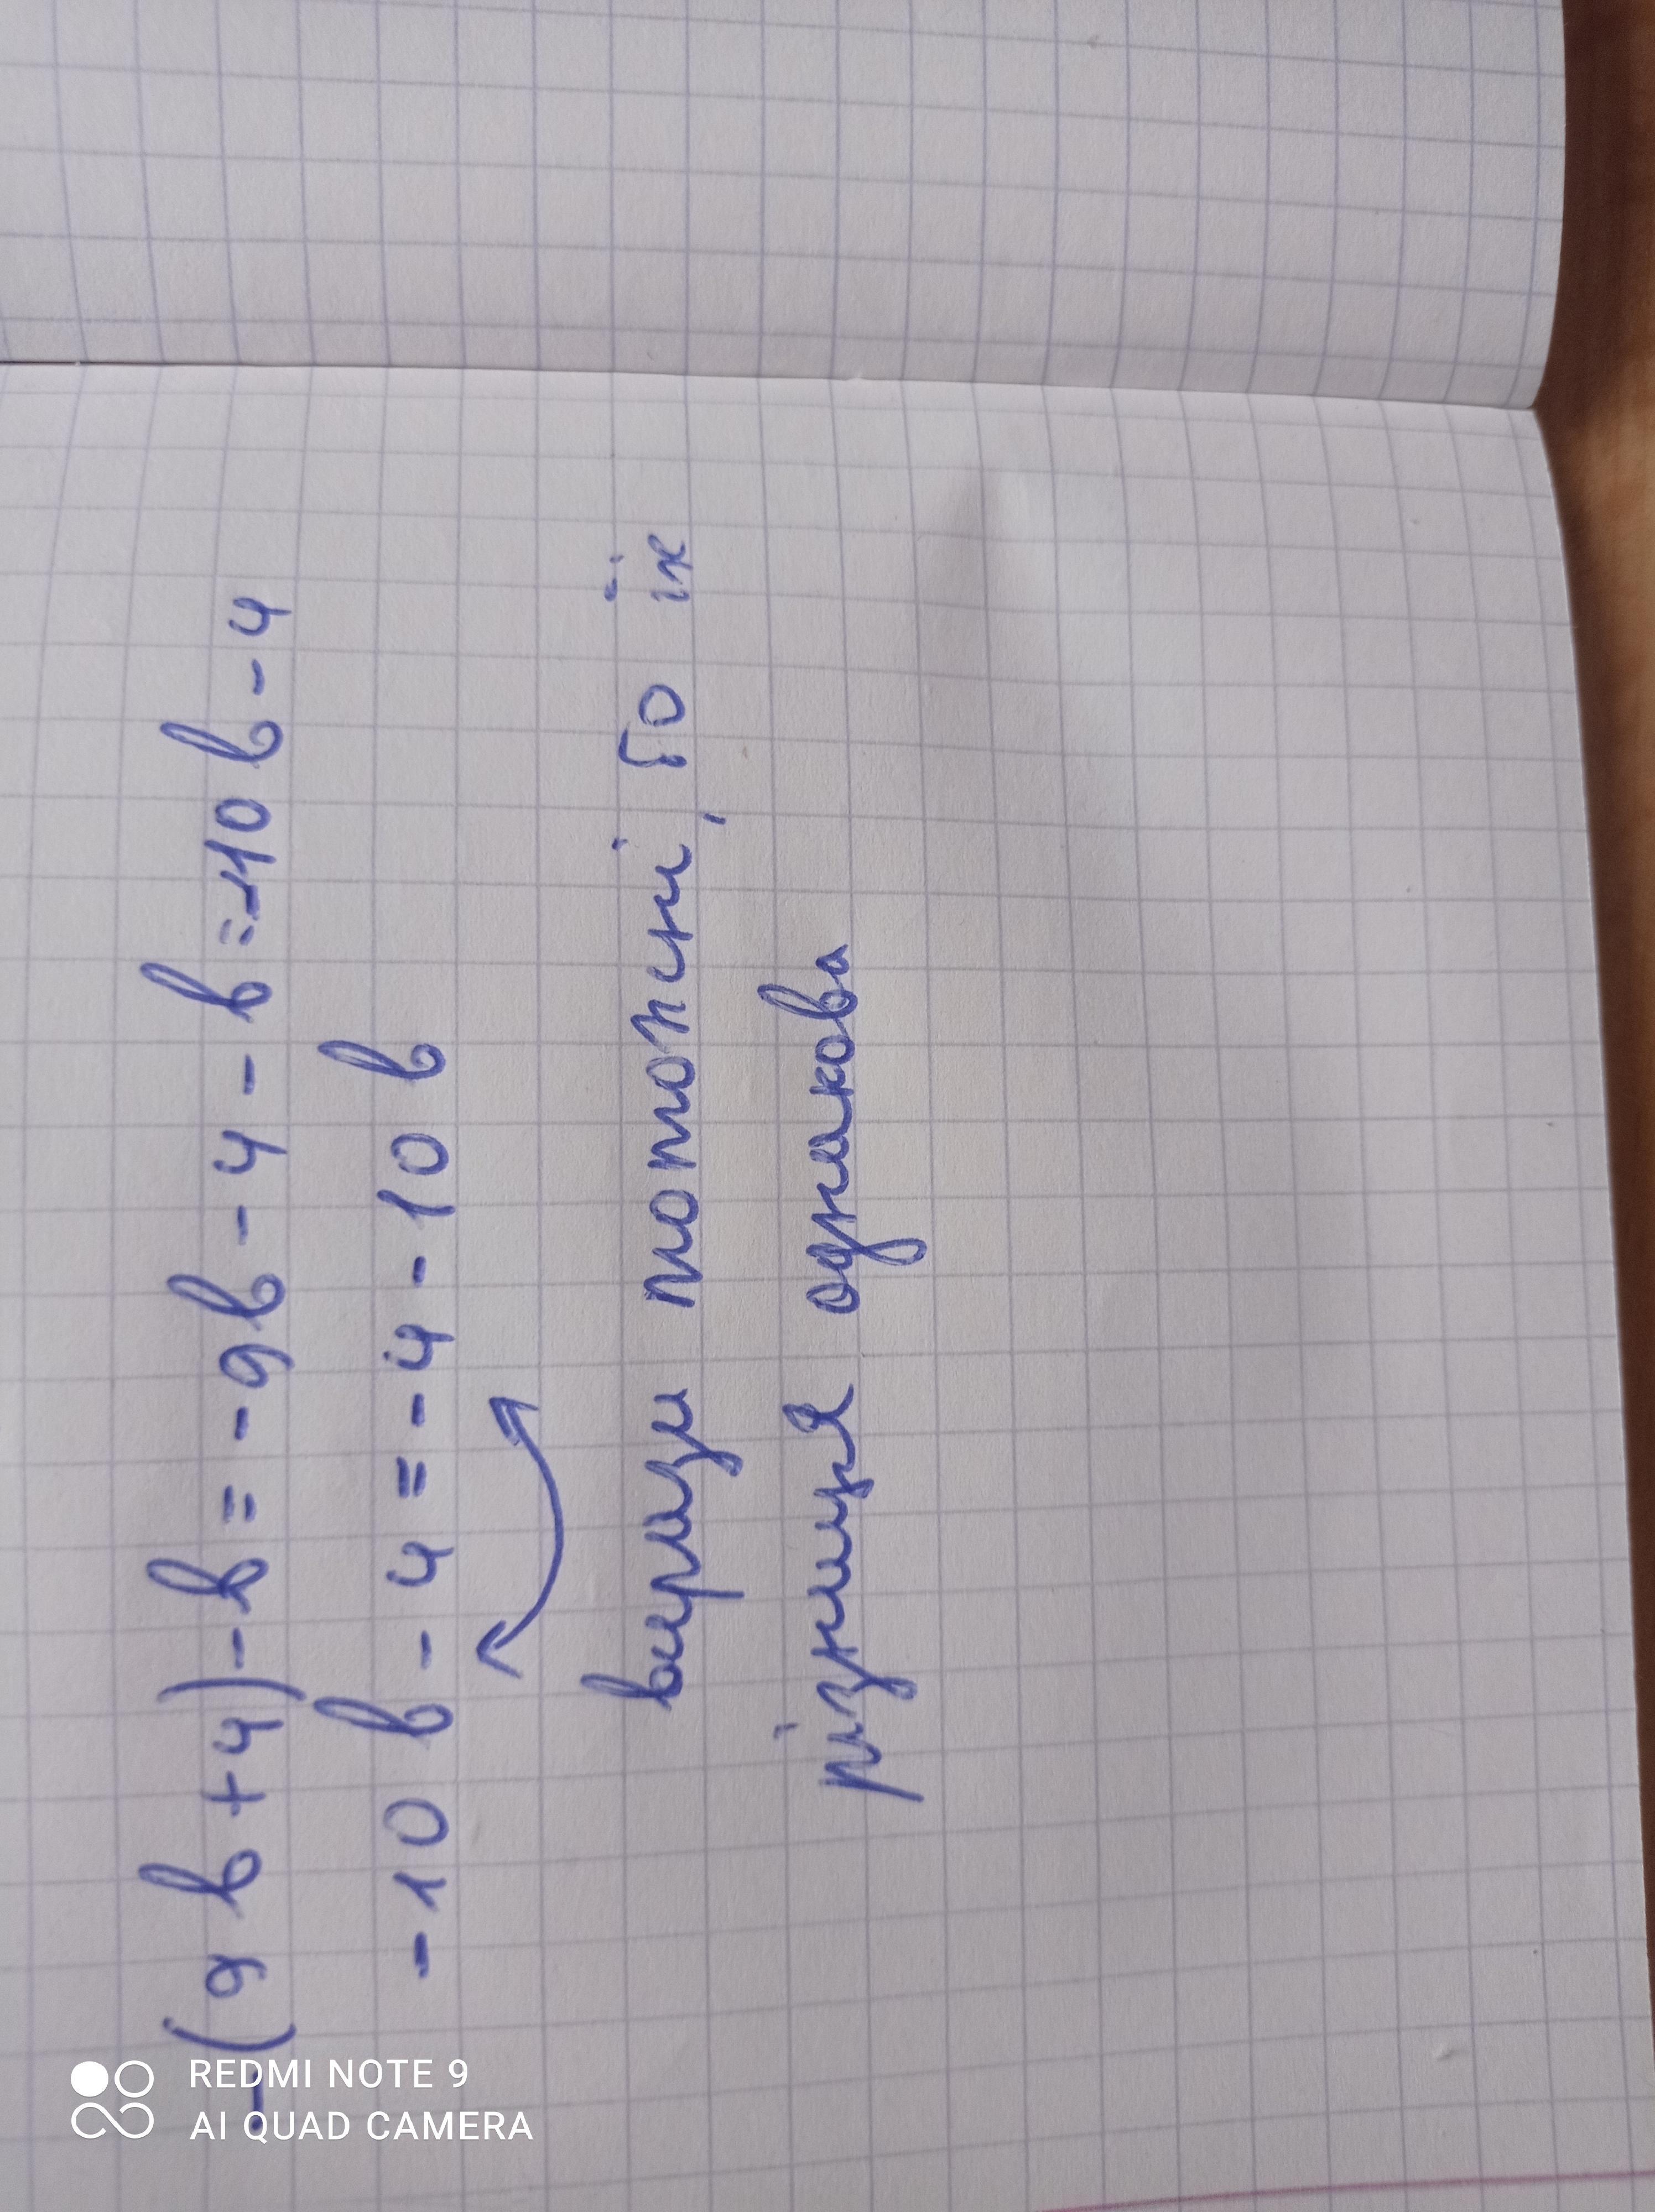 -(9b+4)-b=-9b-4-b=-10b-4
-10b-4=-4-10b
вирази тотожні, бо їх
різниця однакова
REDMI NOTE 9
AI QUAD CAMERA